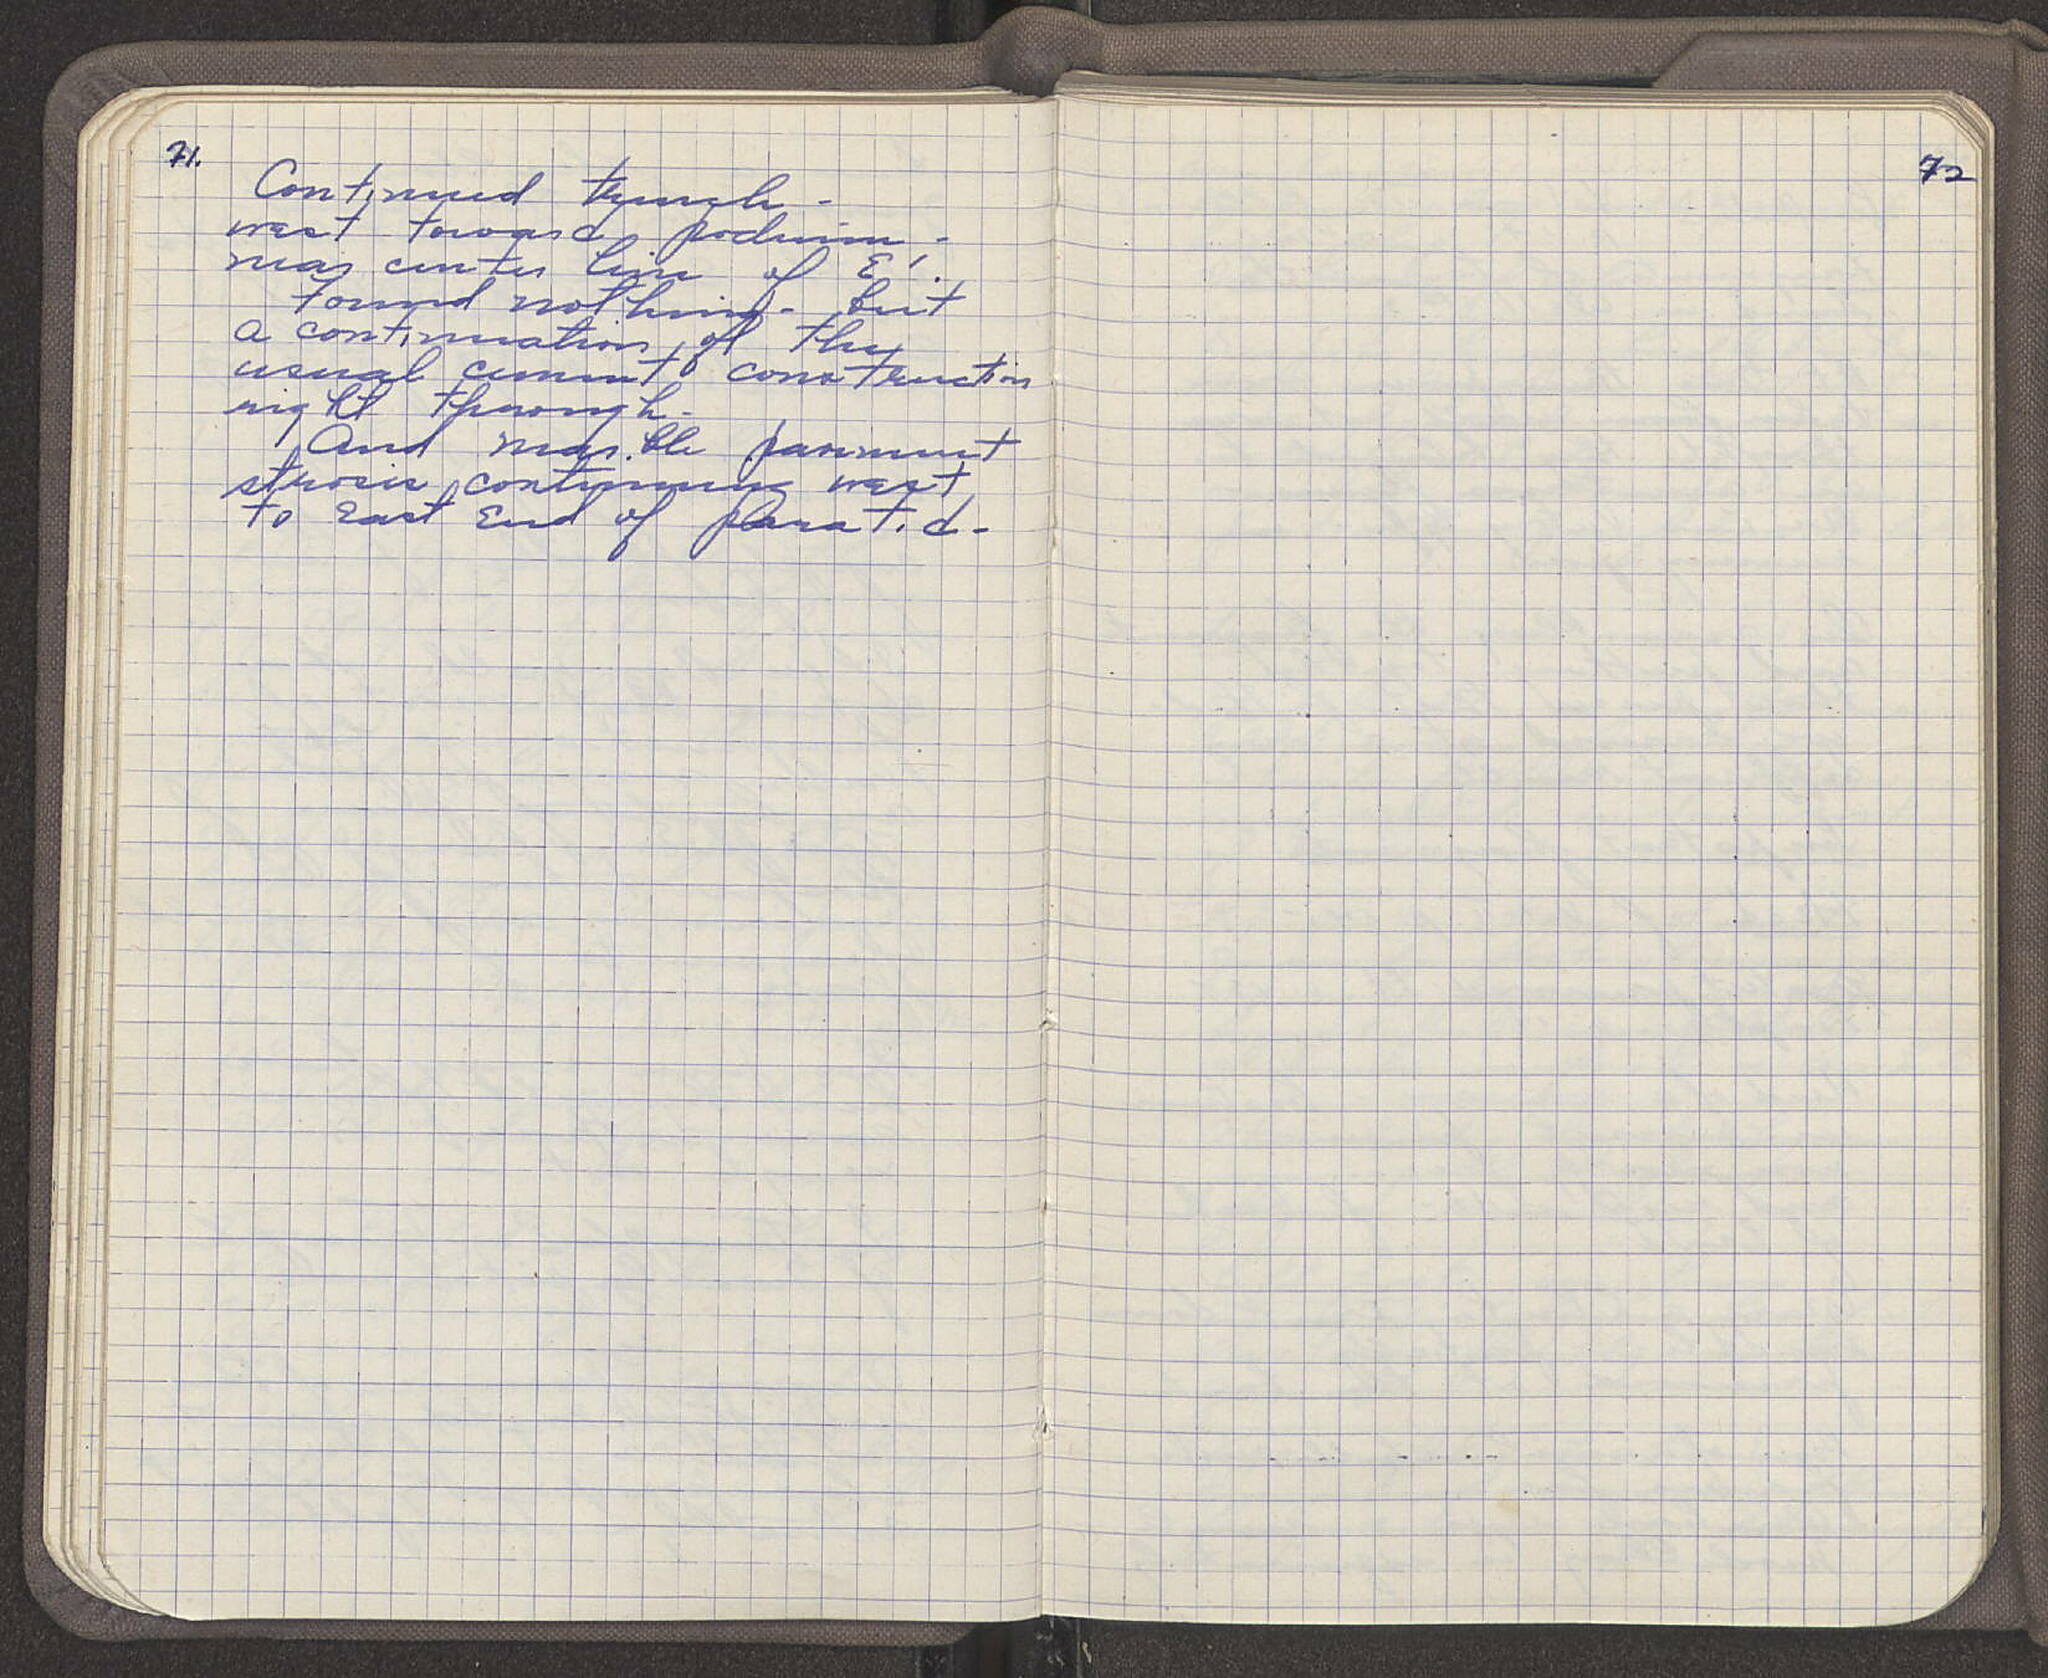 71.
Continued trench -
west toward podium -
near center line of E'.
Found nothing - but
a continuation of the
usual cement construction
right through -
And marble pavement
strosis continuing west
to East End of
72